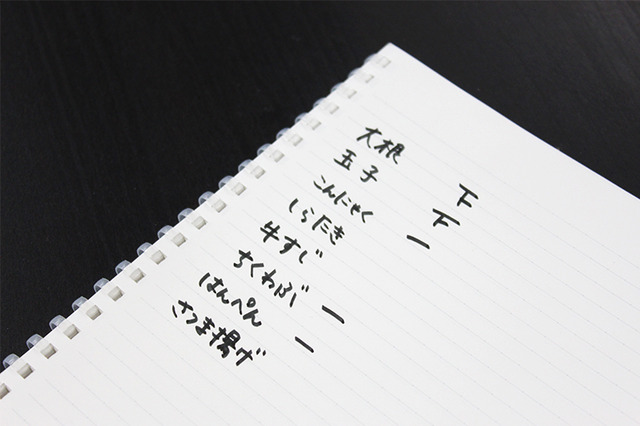 大根 下
玉子 下
こんにゃく 一
しらたき
牛すじ
ちくわぶ 一
はんぺん 一
さつま揚げ